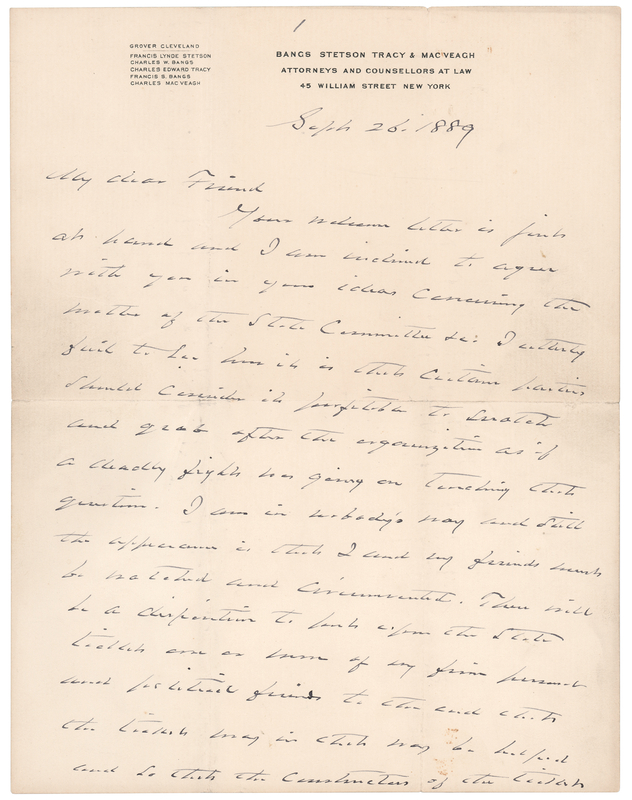 1
GROVER CLEVELAND
FRANCIS LYNDE STETSON
CHARLES W. BANGS
CHARLES EDWARD TRACY
FRANCIS S. BANGS
CHARLES MACVEAGH
BANGS STETSON TRACY & MACVEAGH
ATTORNEYS AND COUNSELLORS AT LAW
45 WILLIAM STREET NEW YORK
Sept 26. 1889
My dear Friend
Your welcome letter is just
at hand and I am inclined to agree
with you in your ideas concerning the
matter of the State Committee &c: I utterly
fail to see how it is that certain parties
should consider it profitable to snatch
and grab after the organization as if
a deadly fight was going on touching that
question. I am in nobody's way and still
the appearance is that I and my friends must
be watched and circumvented. There will
be a disposition to put upon the State
ticket one or more of my firm personal
and political friends to the end that
the ticket may in that way be helped
and so that the constructors of the ticket